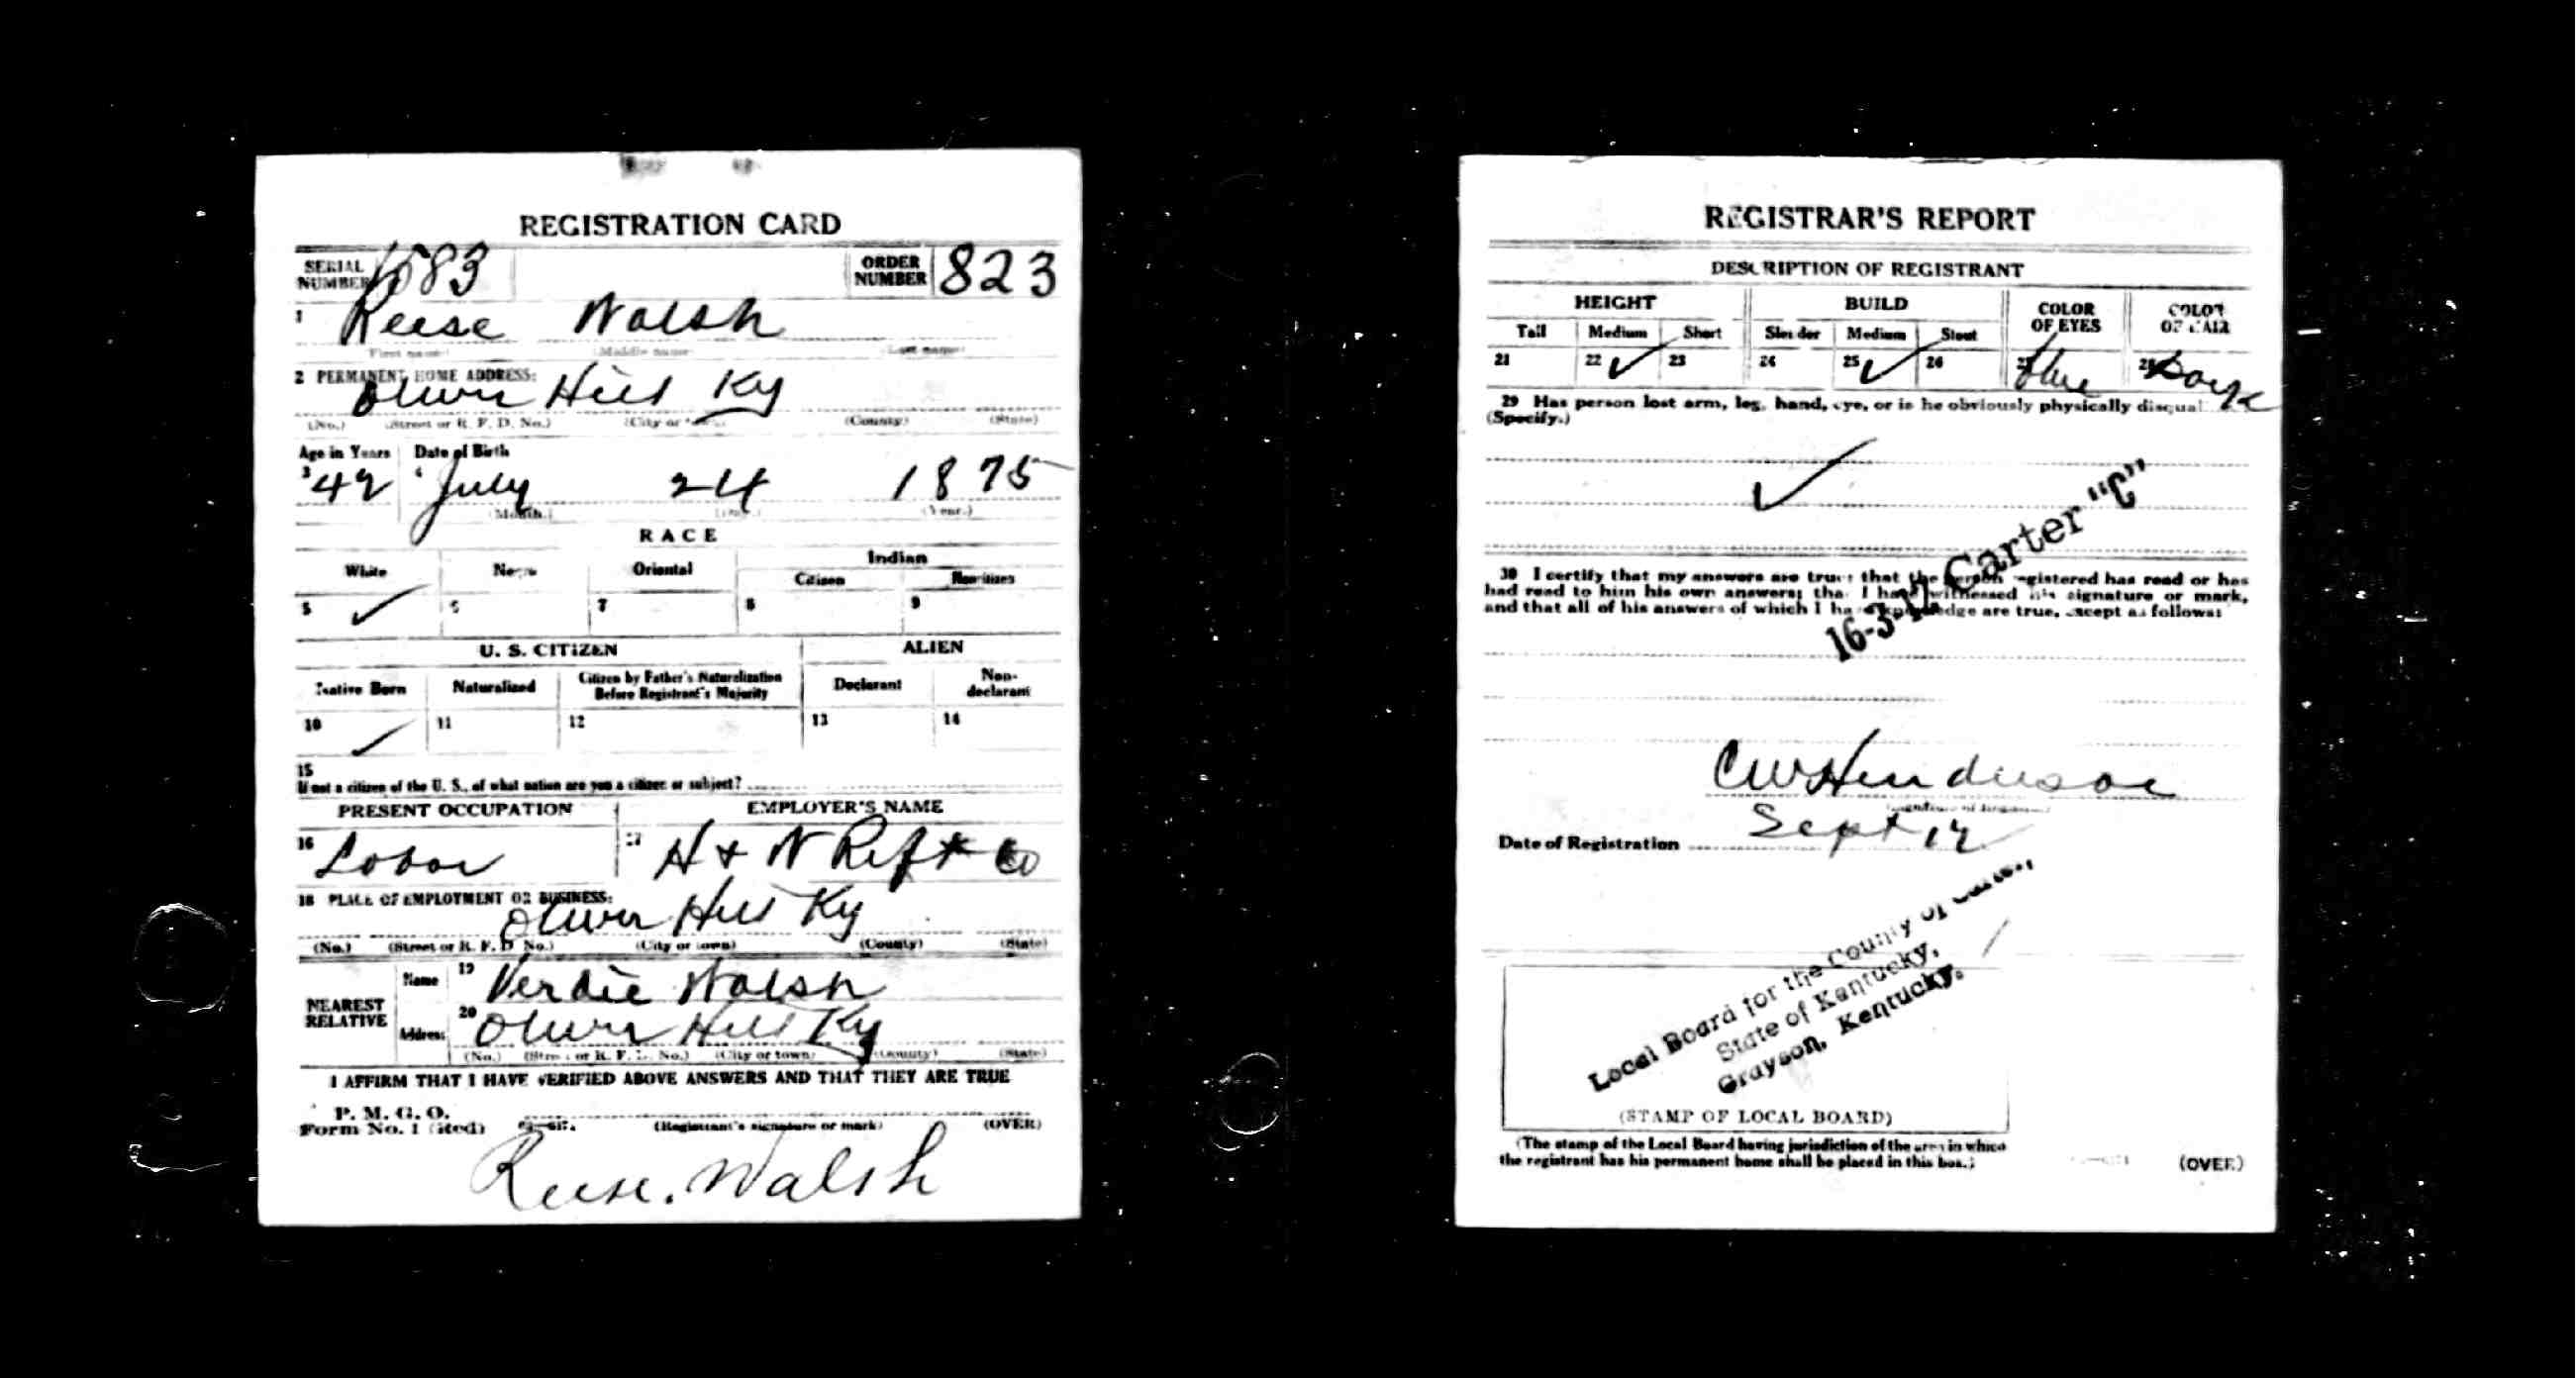 REGISTRATION CARD
SERIAL NUMBER 1583 ORDER NUMBER 823
1 Reese Walsh
(First name) (Middle name) (Last name)
2 PERMANENT HOME ADDRESS:
Olive Hill Ky
(No.) (Street or R. F. D. No.) (City or town) (County) (State)
Age in Years Date of Birth
3 42 4 July 24 1875
(Month.) (Day.) (Year.)
RACE
White Negro Oriental Indian
Citizen Noncitizen
5 ✓ 6 7 8 9
U. S. CITIZEN ALIEN
Native Born Naturalized Citizen by Father's Naturalization Before Registrant's Majority Declarant Non-declarant
10 ✓ 11 12 13 14
15
If not a citizen of the U. S., of what nation are you a citizen or subject?
PRESENT OCCUPATION EMPLOYER'S NAME
16 Labor 17 H + W Ref Co
18 PLACE OF EMPLOYMENT OR BUSINESS:
Olive Hill Ky
(No.) (Street or R. F. D. No.) (City or town) (County) (State)
NEAREST RELATIVE
Name 19 Verdie Walsh
Address 20 Olive Hill Ky
(No.) (Street or R. F. D. No.) (City or town) (County) (State)
I AFFIRM THAT I HAVE VERIFIED ABOVE ANSWERS AND THAT THEY ARE TRUE
P. M. G. O.
Form No. 1 (Red) (Registrant's signature or mark) (OVER)
Reese. Walsh
REGISTRAR'S REPORT
DESCRIPTION OF REGISTRANT
HEIGHT BUILD COLOR OF EYES COLOR OF HAIR
Tall Medium Short Slender Medium Stout
21 22 ✓ 23 24 25 ✓ 26 27 Blue 28 Dark
29 Has person lost arm, leg, hand, eye, or is he obviously physically disqual
(Specify.)
✓
16-3-17 Carter "C"
30 I certify that my answers are true; that the person registered has read or has
had read to him his own answers; that I have witnessed his signature or mark,
and that all of his answers of which I have knowledge are true, except as follows:
C W Henderson
(Signature of Registrar)
Date of Registration Sept 12
Local Board for the County of Carter,
State of Kentucky,
Grayson, Kentucky.
(STAMP OF LOCAL BOARD)
(The stamp of the Local Board having jurisdiction of the area in which
the registrant has his permanent home shall be placed in this box.)
(OVER)